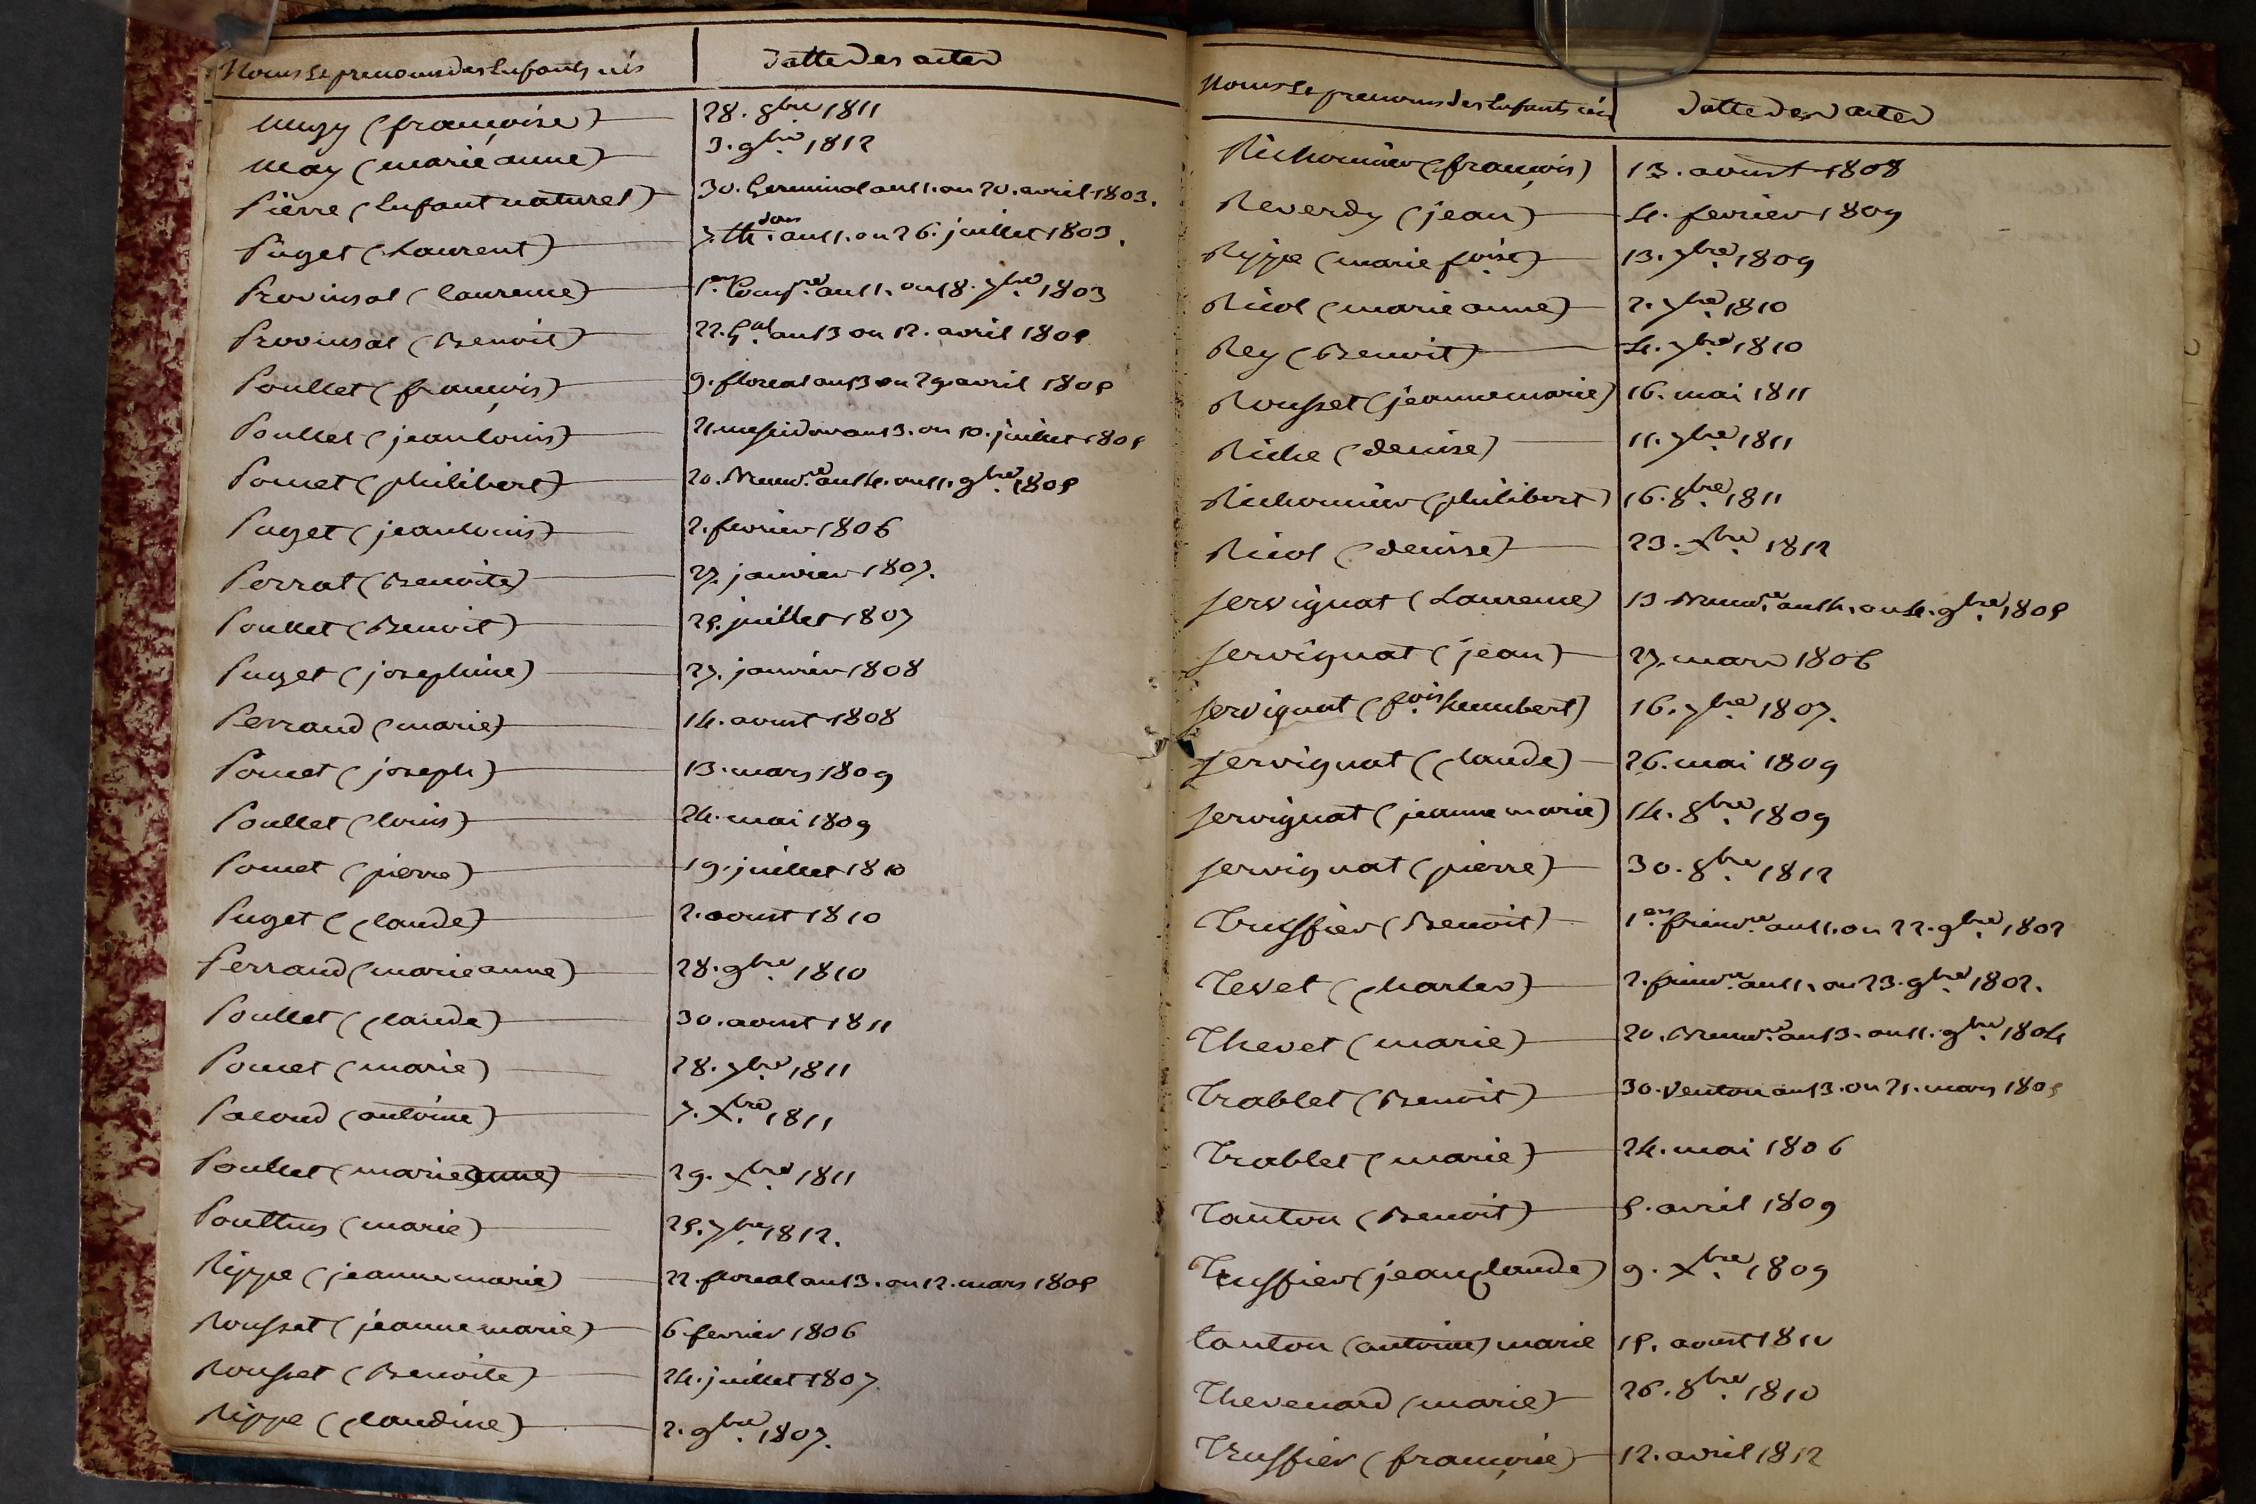 Noms et prenoms des Enfants nés | Datte des actes
Mugy (françoise) 28. 8bre 1811
May (marie anne) 3. 9bre 1812
Piërre (Enfant naturel) 30. Germinal an 11. ou 20. avril 1803.
Puget (Laurent) 7. thdor an 11. ou 26. juillet 1803.
Provinsal (laurence) 1er Compre an 11. ou 18. 7bre 1803
Provinsal (Benoit) 22. Gal an 13 ou 12. avril 1805
Poullet (françois) 9. floreal an 13 ou 29. avril 1805
Poullet (jean louis) 21. messidor an 13. ou 10. juillet 1805
Pomet (philibert) 20. Brumre an 14. ou 11. 9bre 1805
Puget (jean louis) 2. fevrier 1806
Perrat (Benoite) 27. janvier 1807.
Poullet (Benoit) 25. juillet 1807
Puget (josephine) 27. janvier 1808
Perraud (marie) 14. aoust 1808
Pomet (joseph) 13. mars 1809
Poullet (louis) 24. mai 1809
Pomet (pierre) 19. juillet 1810
Puget (Claude) 2. aoust 1810
Perraud (marie anne) 28. 9bre 1810
Poullet (Claude) 30. aoust 1811
Pomet (marie) 28. 7bre 1811
Pacoud (antoine) 7. Xbre 1811
Poullet (marie anne) 29. Xbre 1811
(marie) 25. 7bre 1812.
Rippe (jeanne marie) 22. floreal an 13. ou 12. mars 1805
Rousset (jeanne marie) 6 fevrier 1806
Rousset (Benoite) 24. juillet 1807
Rippe (Claudine) 2. 9bre 1807.
Noms et prenoms des Enfants nés | Datte des actes
Richonnier (françois) 13. aoust 1808
Reverdy (jean) 4. fevrier 1809
Rippe (marie foise) 13. 7bre 1809
Ricol (marie anne) 2. 7bre 1810
Rey (Benoit) 4. 7bre 1810
Rousset (jeanne marie) 16. mai 1811
Riche (denise) 11. 7bre 1811
Richonnier (philibert) 16. 8bre 1811
Ricol (denise) 23. Xbre 1812
Servignat (Laurence) 13 Brumre an 14. ou 4. 9bre 1805
Servignat (jean) 27. mars 1806
Servignat (fois humbert) 16. 7bre 1807.
Servignat (Claude) 26. mai 1809
Servignat (jeanne marie) 14. 8bre 1809
Servignat (pierre) 30. 8bre 1812
Truffier (Benoit) 1er frimre an 11. ou 22. 9bre 1802
Tevet (Charles) 2. frimre an 11. ou 23. 9bre 1802.
Thevet (marie) 20. Brumre an 13. ou 11. 9bre 1804
Trablet (Benoit) 30. Ventose an 13. ou 21. mars 1805
Trablet (marie) 24. mai 1806
Tanton (Benoit) 5. avril 1809
Truffier (jean Claude) 9. Xbre 1809
tanton (antoine) marie 15. aoust 1810
Thevenard (marie) 26. 8bre 1810
Truffier (françoise) 12. avril 1812